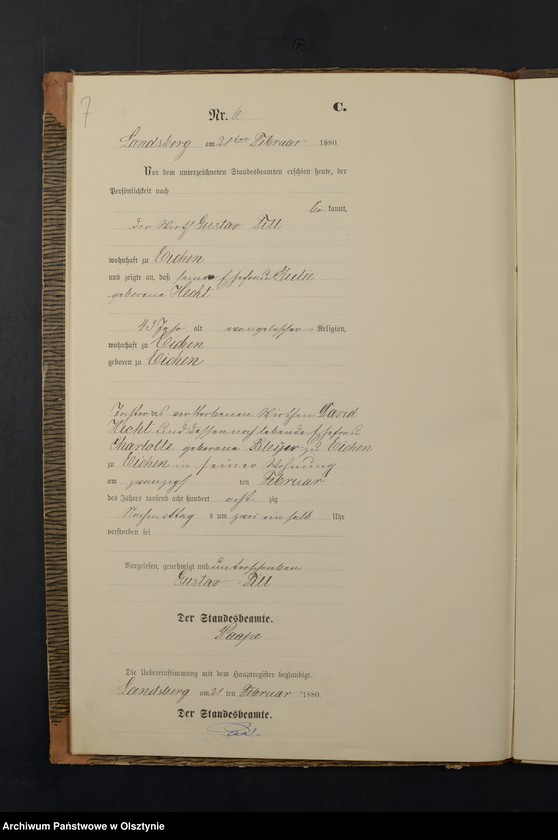 7
C.
Nr. 6
Landsberg am 21ten Februar 1880.
Vor dem unterzeichneten Standesbeamten erschien heute, der
Persönlichkeit nach
be kannt,
der Wirth Gustav Till
wohnhaft zu Eichen
und zeigte an, daß seine Ehefrau Julie
geborene Hecht
43 Jahr alt evangelischer Religion,
wohnhaft zu Eichen
geboren zu Eichen
Tochter des verstorbenen Wirthen David
Hecht und dessen nachlebende Ehefrau
Charlotte geborene zu Eichen
zu Eichen in seiner Wohnung
am zwanzigsten Februar
des Jahres tausend acht hundert acht zig
Nachmittag s um zwei ein halb Uhr
verstorben sei
Vorgelesen, genehmigt und unterschrieben
Gustav Till
Der Standesbeamte.
Die Uebereinstimmung mit dem Hauptregister beglaubigt.
Landsberg am 21 ten Februar 1880.
Der Standesbeamte.
Archiwum Państwowe w Olsztynie